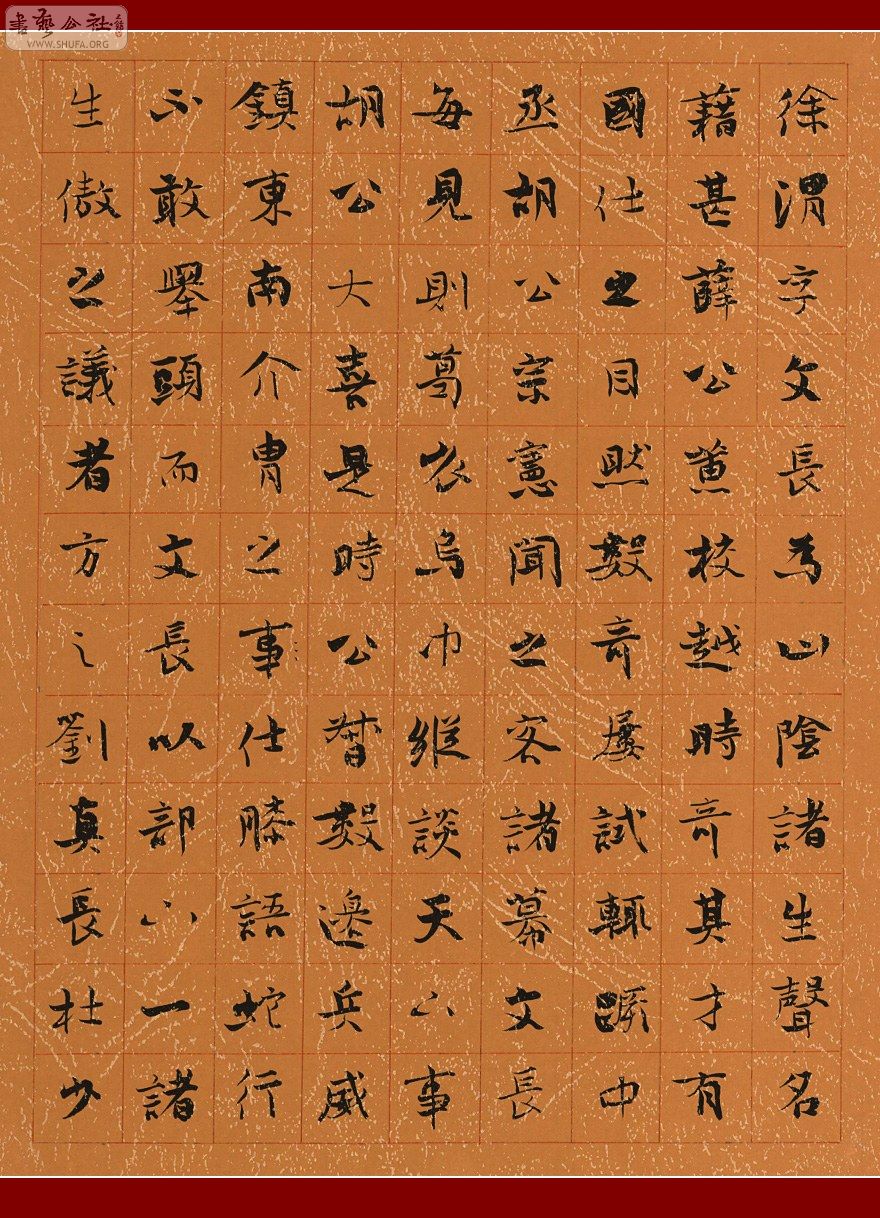 書藝公社
WWW.SHUFA.ORG
徐渭字文長為山陰諸生聲名
藉甚薛公蕙校越時奇其才有
國仕之目然數奇屢試輒蹶中
丞胡公宗憲聞之客諸幕文長
每見則葛衣烏巾縱談天下事
胡公大喜是時公督數邊兵威
鎮東南介胄之事仕膝語蛇行
不敢舉頭而文長以部下一諸
生傲之議者方之劉真長杜少